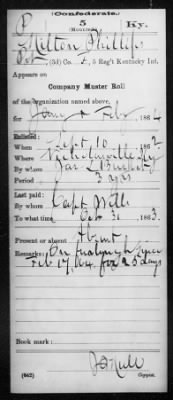 (Confederate.)
P 5 Ky.
(Mounted)
Milton Phillips
Pvt, (3d) Co. F, 5 Reg't Kentucky Inf.
Appears on
Company Muster Roll
of the organization named above,
for Jany & Feby, 1864
Enlisted:
When Sept 10, 1862
Where Nicholasville Ky
By whom
Period 3 yrs
Last paid:
By whom Capt
To what time Oct 31, 1863.
Present or absent Absent
Remarks: On furlough since
Feb 17, 64 for 25 days
Book mark:
(642) Copyist.